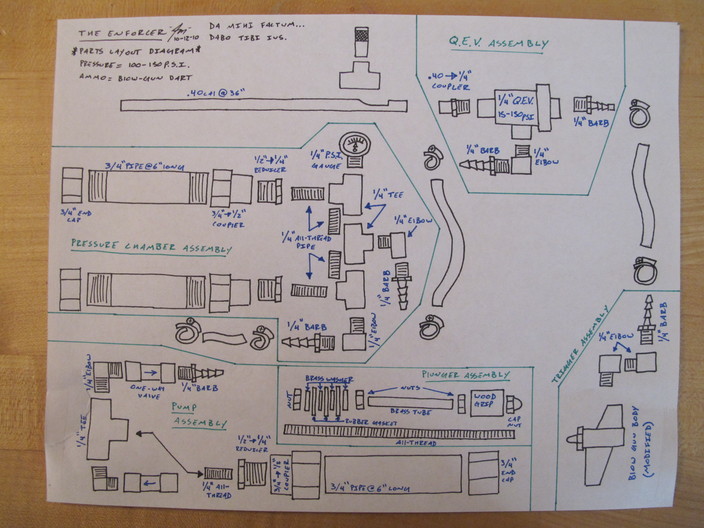 THE ENFORCER
10-12-10
DA MIHI FACTUM...
DABO TIBI IUS.
*PARTS LAYOUT DIAGRAM*
PRESSURE = 100-150 P.S.I.
AMMO = BLOW-GUN DART
.40cal @ 36"
Q.E.V. ASSEMBLY
.40→1/4"
COUPLER
1/4" Q.E.V.
15-150PSI
1/4" BARB
1/4" BARB
1/4"
ELBOW
3/4" PIPE @ 6" LONG
1/2"→1/4"
REDUCER
1/4" P.S.I.
GAUGE
3/4" END
CAP
3/4"→1/2"
COUPLER
1/4" TEE
1/4" ELBOW
1/4" ALL-THREAD
PIPE
PRESSURE CHAMBER ASSEMBLY
1/4" BARB
1/4" BARB
1/4" ELBOW
TRIGGER ASSEMBLY
1/4" BARB
1/4" ELBOW
BLOW GUN BODY
(MODIFIED)
PLUNGER ASSEMBLY
NUT
BRASS WASHER
NUTS
BRASS TUBE
WOOD
GRIP
CAP
NUT
RUBBER GASKET
ALL-THREAD
1/4" ELBOW
ONE-WAY
VALVE
1/4" BARB
1/4" TEE
PUMP
ASSEMBLY
1/4" ALL-
THREAD
1/2"→1/4"
REDUCER
3/4"→1/2"
COUPLER
3/4" PIPE @ 6" LONG
3/4"
END CAP